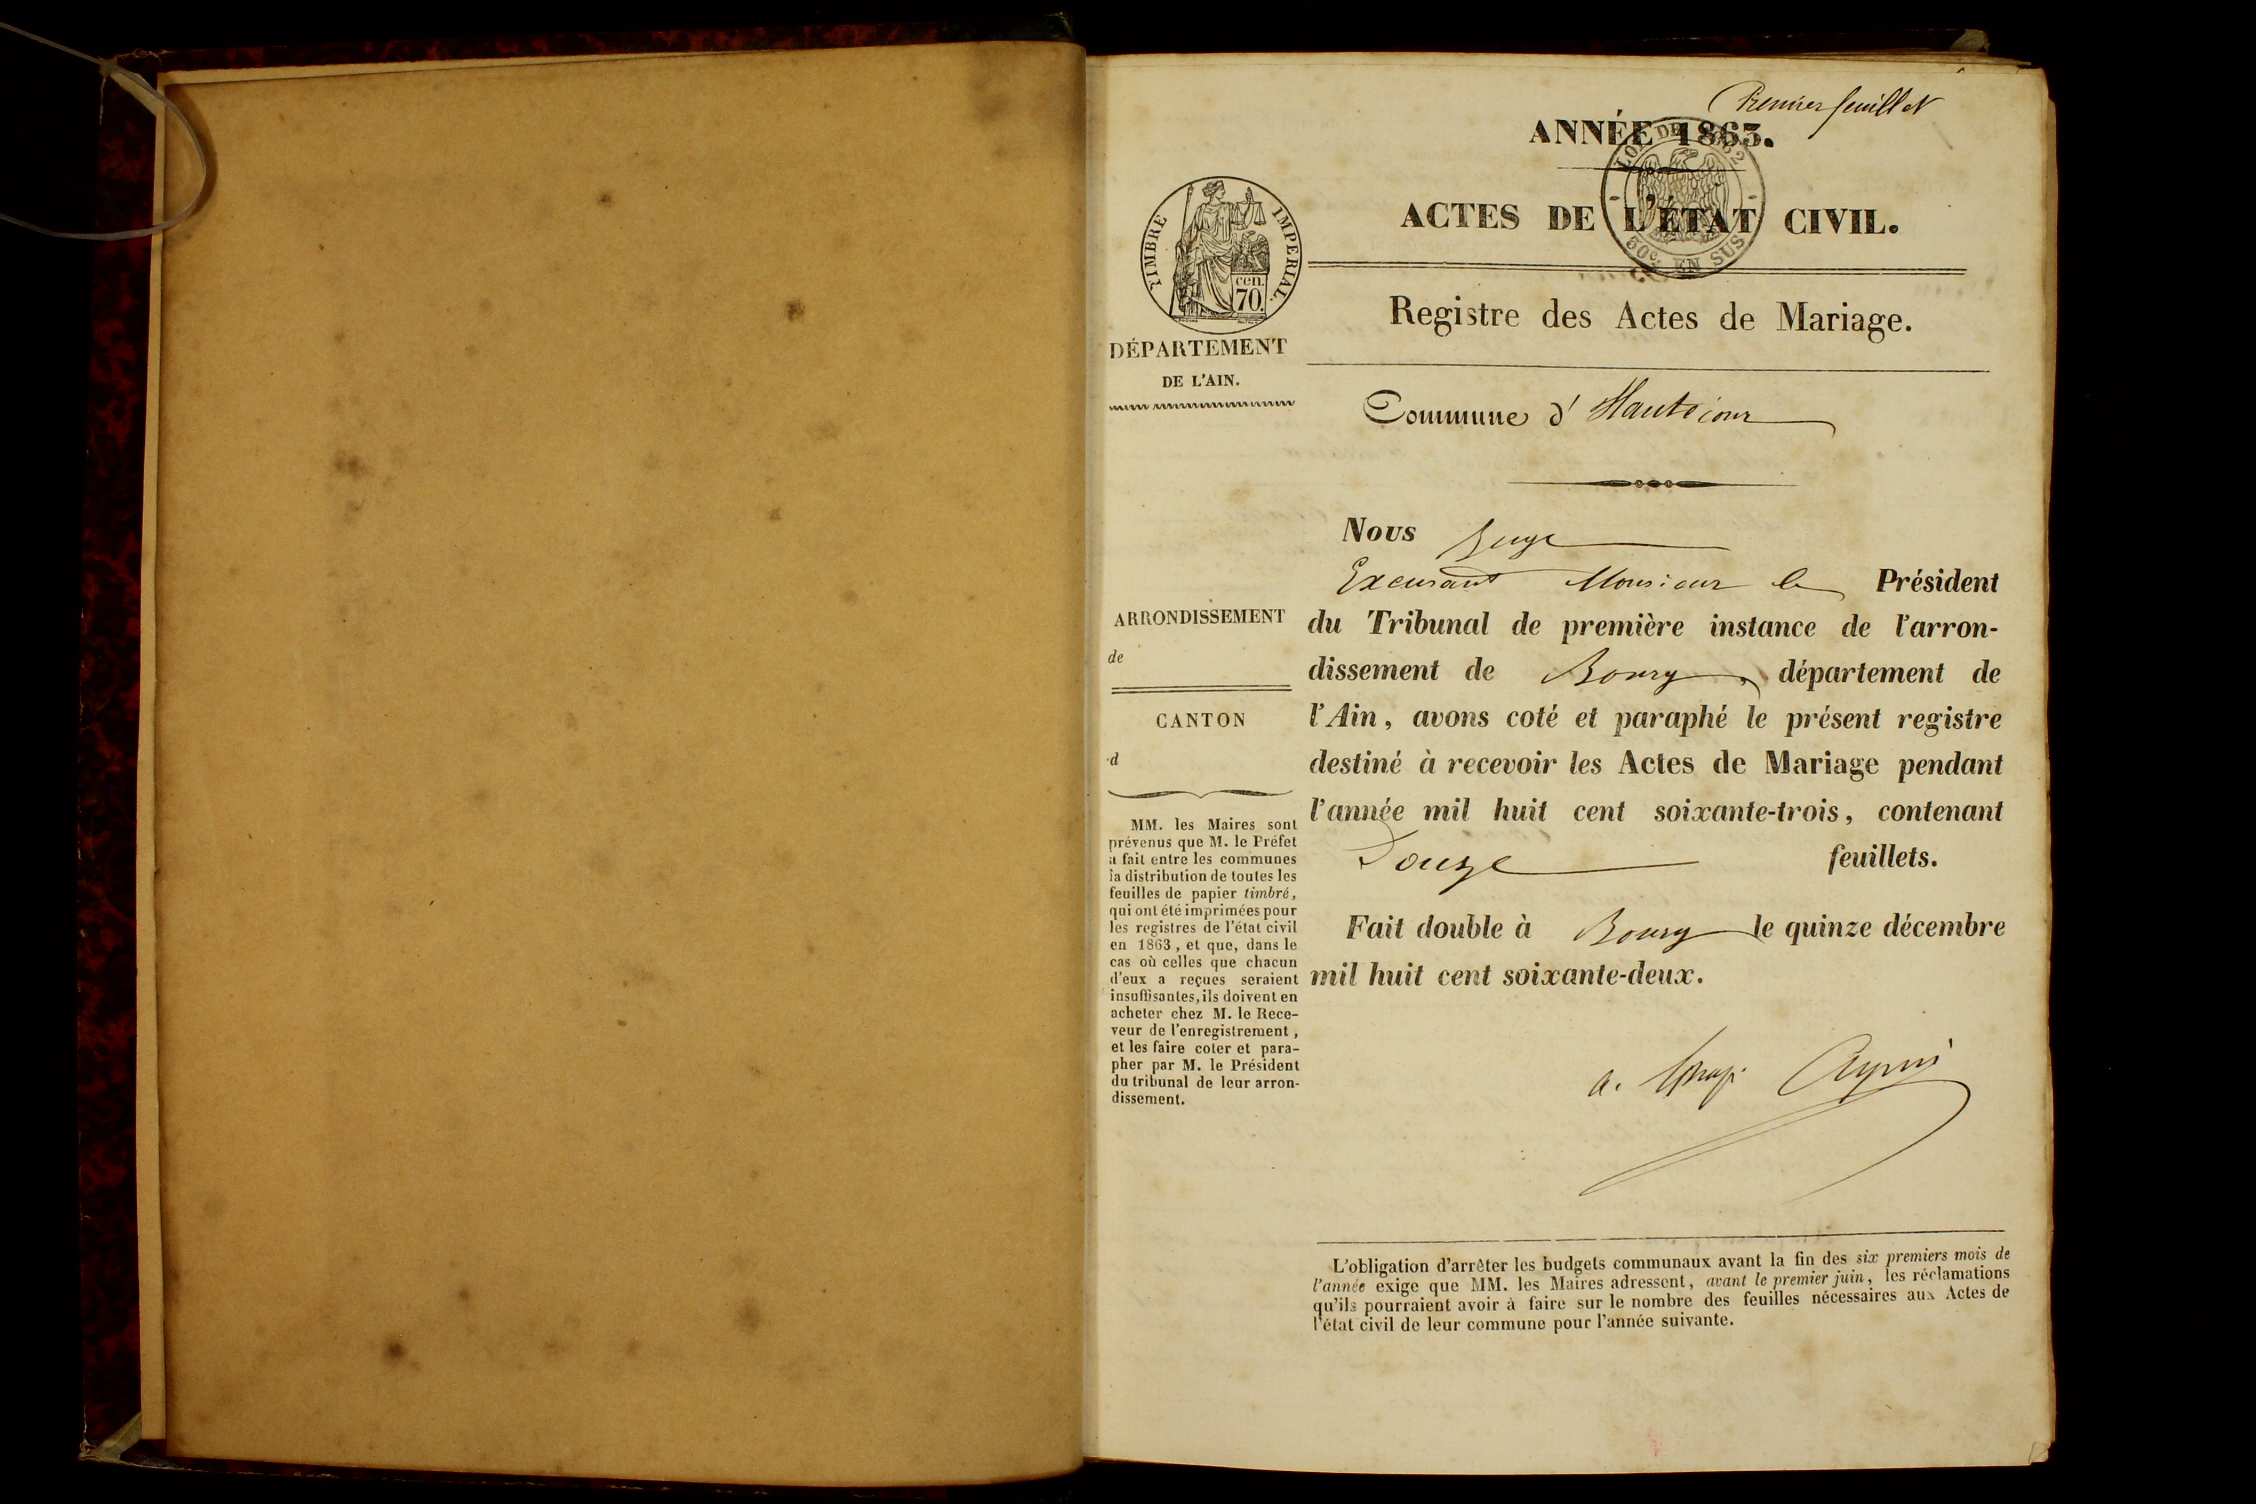 Premier feuillet
ANNÉE 1863.
LOI DE 1862
50c. EN SUS
ACTES DE L'ÉTAT CIVIL.
TIMBRE IMPERIAL.
cen. 70.
Registre des Actes de Mariage.
DÉPARTEMENT
DE L'AIN.
Commune d' Hautecour
Nous Juge
Excusant Monsieur le Président
du Tribunal de première instance de l'arron-
dissement de Bourg, département de
l'Ain, avons coté et paraphé le présent registre
destiné à recevoir les Actes de Mariage pendant
l'année mil huit cent soixante-trois, contenant
Douze feuillets.
Fait double à Bourg le quinze décembre
mil huit cent soixante-deux.
a.
ARRONDISSEMENT
de
CANTON
d
MM. les Maires sont
prévenus que M. le Préfet
a fait entre les communes
la distribution de toutes les
feuilles de papier timbré,
qui ont été imprimées pour
les registres de l'état civil
en 1863, et que, dans le
cas où celles que chacun
d'eux a reçues seraient
insuffisantes, ils doivent en
acheter chez M. le Rece-
veur de l'enregistrement,
et les faire coter et para-
pher par M. le Président
du tribunal de leur arron-
dissement.
L'obligation d'arrêter les budgets communaux avant la fin des six premiers mois de
l'année exige que MM. les Maires adressent, avant le premier juin, les réclamations
qu'ils pourraient avoir à faire sur le nombre des feuilles nécessaires aux Actes de
l'état civil de leur commune pour l'année suivante.